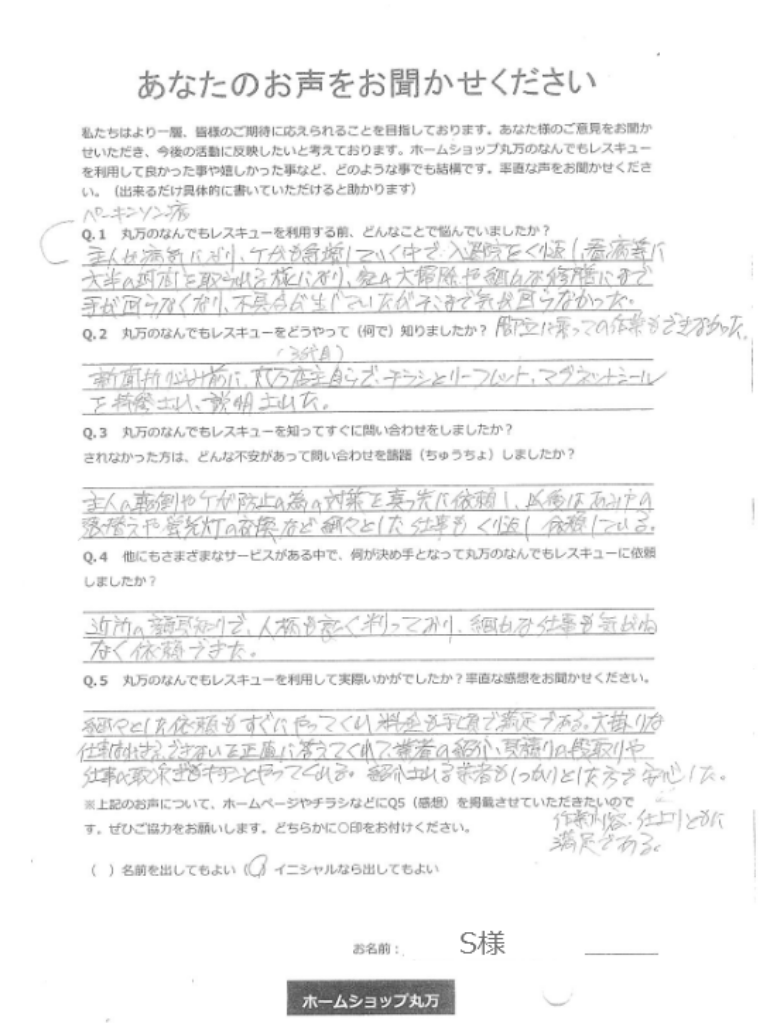 あなたのお声をお聞かせください
私たちはより一層、皆様のご期待に応えられることを目指しております。あなた様のご意見をお聞か
せいただき、今後の活動に反映したいと考えております。ホームショップ丸万のなんでもレスキュー
を利用して良かった事や嬉しかった事など、どのような事でも結構です。率直な声をお聞かせくださ
い。(出来るだけ具体的に書いていただけると助かります)
パーキンソン病
Q.1 丸万のなんでもレスキューを利用する前、どんなことで悩んでいましたか?
主人が病気になり、ケガも急増していく中で、入退院をくり返し、看病等に
大半の時間を取られる様になり、窓や大掃除や細かな修膳にまで
手が回らなくなり、不具合が生じていたがそこまで気が回らなかった。
Q.2 丸万のなんでもレスキューをどうやって(何で)知りましたか? 脚立に乗っての作業もできなかった。
(3代目)
新聞折り込み前に、丸万店主自らで、チラシとリーフレット、マグネットシール
を持参され、説明された。
Q.3 丸万のなんでもレスキューを知ってすぐに問い合わせをしましたか?
されなかった方は、どんな不安があって問い合わせを躊躇(ちゅうちょ)しましたか?
主人の転倒やケガ防止の為の対策を真っ先に依頼し、以後はあみ戸の
張替えや蛍光灯の交換など細々とした仕事もくり返し依頼している。
Q.4 他にもさまざまなサービスがある中で、何が決め手となって丸万のなんでもレスキューに依頼
しましたか?
近所の顔見知りで、人柄も良く判っており、細かな仕事も気がね
なく依頼できた。
Q.5 丸万のなんでもレスキューを利用して実際いかがでしたか?率直な感想をお聞かせください。
細々とした依頼もすぐにやってくれ料金も手頃で満足である。大掛りな
仕事はできる、できないを正直に答えてくれて業者の紹介、見積りの段取りや
仕事の取次ぎもキチンとやってくれる。紹介される業者もしっかりとした方で安心した。
※上記のお声について、ホームページやチラシなどにQ5(感想)を掲載させていただきたいので
す。ぜひご協力をお願いします。どちらかに〇印をお付けください。
作業内容、仕上りともに
満足である。
( )名前を出してもよい (〇) イニシャルなら出してもよい
お名前: S様
ホームショップ丸万